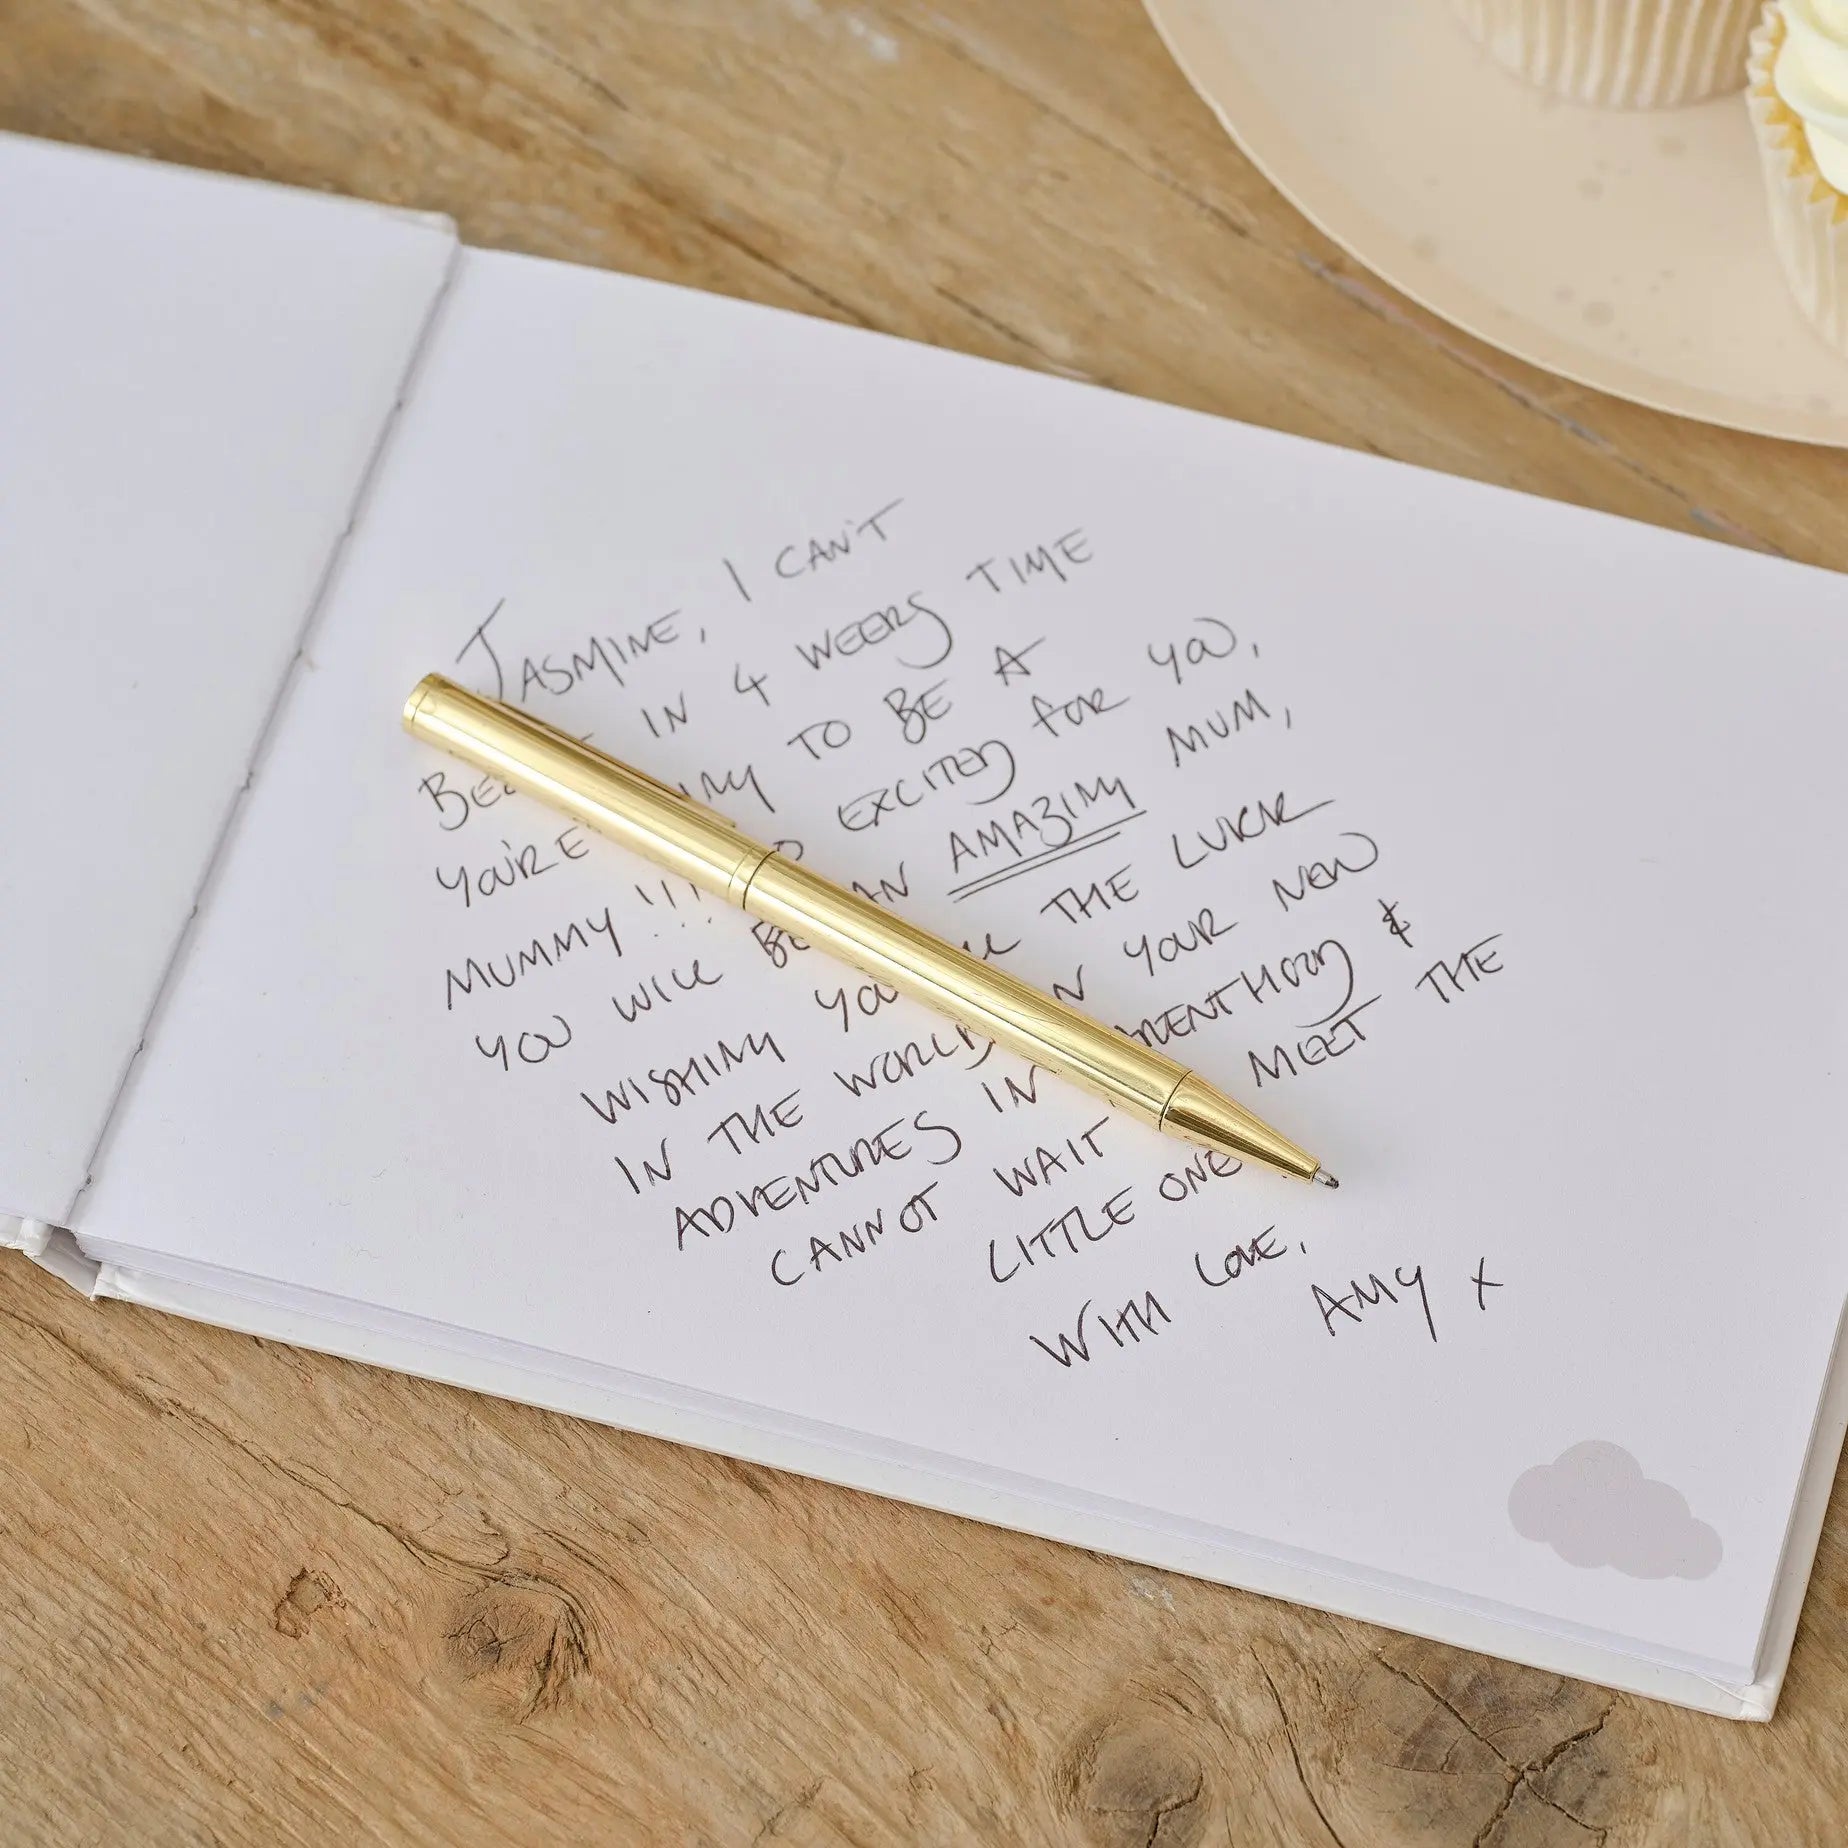 JASMINE, I CAN'T
IN 4 WEEKS TIME
YOU'RE TO BE A
MUMMY!!! EXCITED FOR YOU,
YOU WILL BE AN AMAZING MUM,
WISHING THE LUCK
IN THE WORLD IN YOUR NEW
ADVENTURES IN &
CANNOT WAIT MEET THE
LITTLE ONE
WITH LOVE,
AMY X